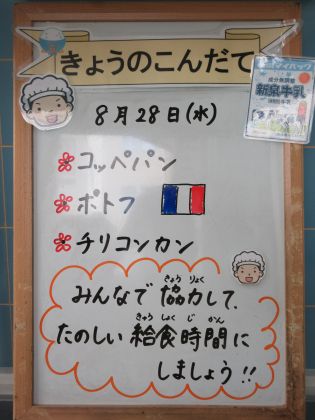 きょうのこんだて
8月28日(水)
コッペパン
ポトフ
チリコンカン
みんなで協力して、
たのしい給食時間に
しましょう!!
きょうりょく
きゅうしょくじかん
成分無調整
新泉牛乳